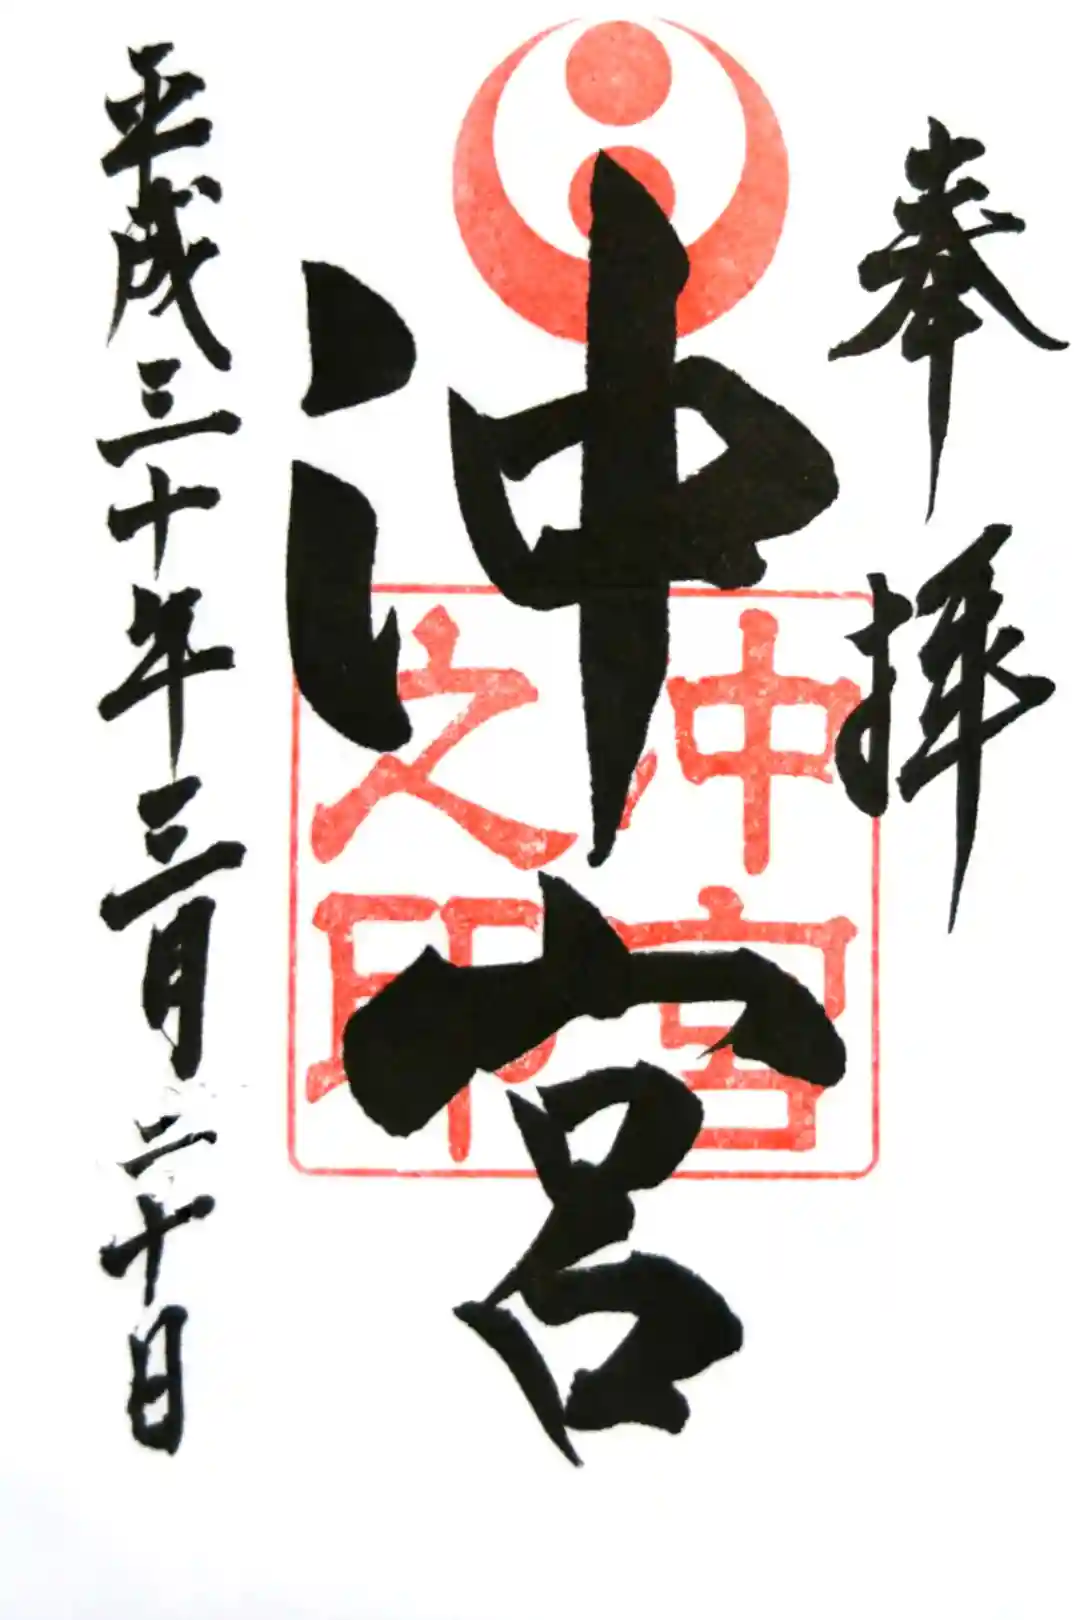 奉拝
沖宮
沖宮
之印
平成三十年三月二十日